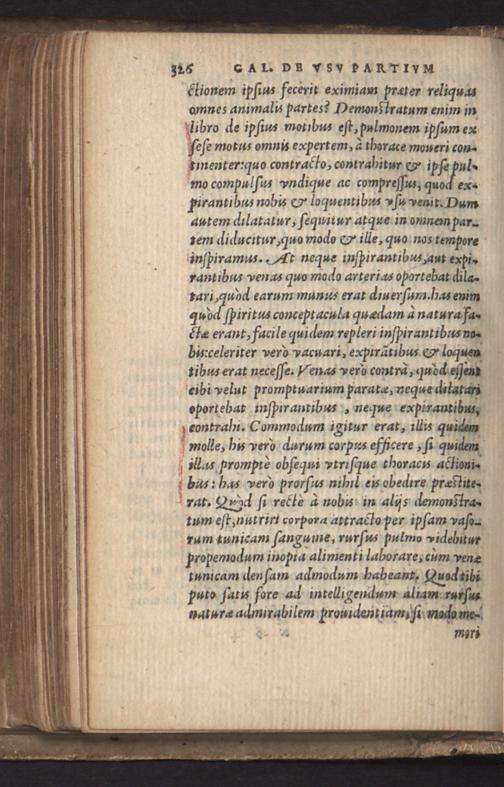 326 GAL. DE VSV PARTIVM
ctionem ipsius fecerit eximiam præter reliquas
omnes animalis partes? Demonstratum enim in
libro de ipsius motibus est, pulmonem ipsum ex
sese motus omnis expertem, à thorace moueri con-
tinenter: quo contracto, contrahitur & ipse pul-
mo compulsus vndique ac compressus, quod ex-
pirantibus nobis & loquentibus vsu venit. Dum
autem dilatatur, sequitur atque in omnem par-
tem diducitur, quo modo & ille, quo nos tempore
inspiramus. At neque inspirantibus, aut expi-
rantibus venas quo modo arterias oportebat dila-
tari, quòd earum munus erat diuersum. has enim
quòd spiritus conceptacula quædam à natura fa-
ctæ erant, facile quidem repleri inspirantibus no-
bis: celeriter verò vacuari, expirãtibus & loquen
tibus erat necesse. Venas verò contrà, quòd essent
cibi velut promptuarium paratæ, neque dilatari
oportebat inspirantibus, neque expirantibus,
contrahi. Commodum igitur erat, illis quidem
molle, his verò durum corpus efficere, si quidem
illas promptè obsequi vtrisque thoracis actioni-
bus: has verò prorsus nihil eis obedire præstite-
rat. Quòd si rectè à nobis in alijs demonstra-
tum est, nutriri corpora attracto per ipsam vaso-
rum tunicam sanguine, rursus pulmo videbitur
propemodum inopia alimenti laborare, cùm venæ
tunicam densam admodum habeant. Quod tibi
puto satis fore ad intelligendum aliam rursus
naturæ admirabilem prouidentiam, si modo me-
mori